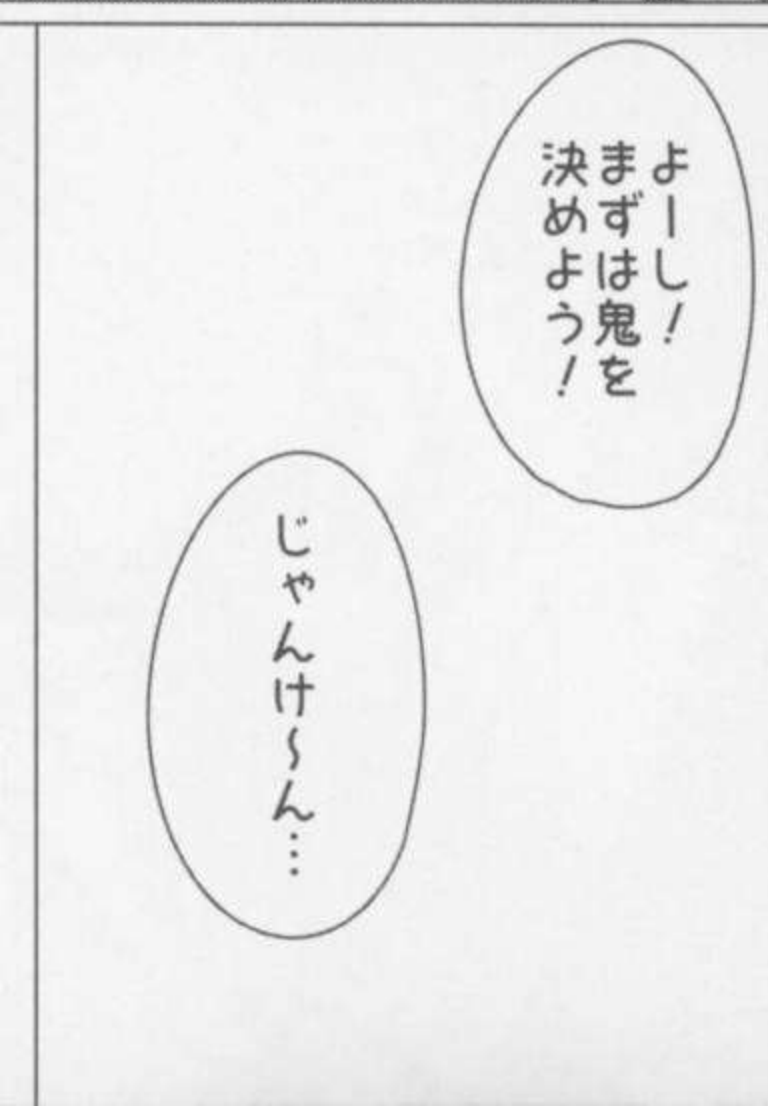 よーし！
まずは鬼を
決めよう！
じゃんけ〜ん…